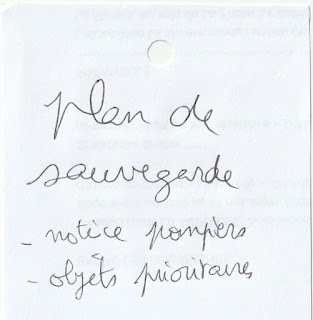 plan de
sauvegarde
- notice pompiers
- objets prioritaires